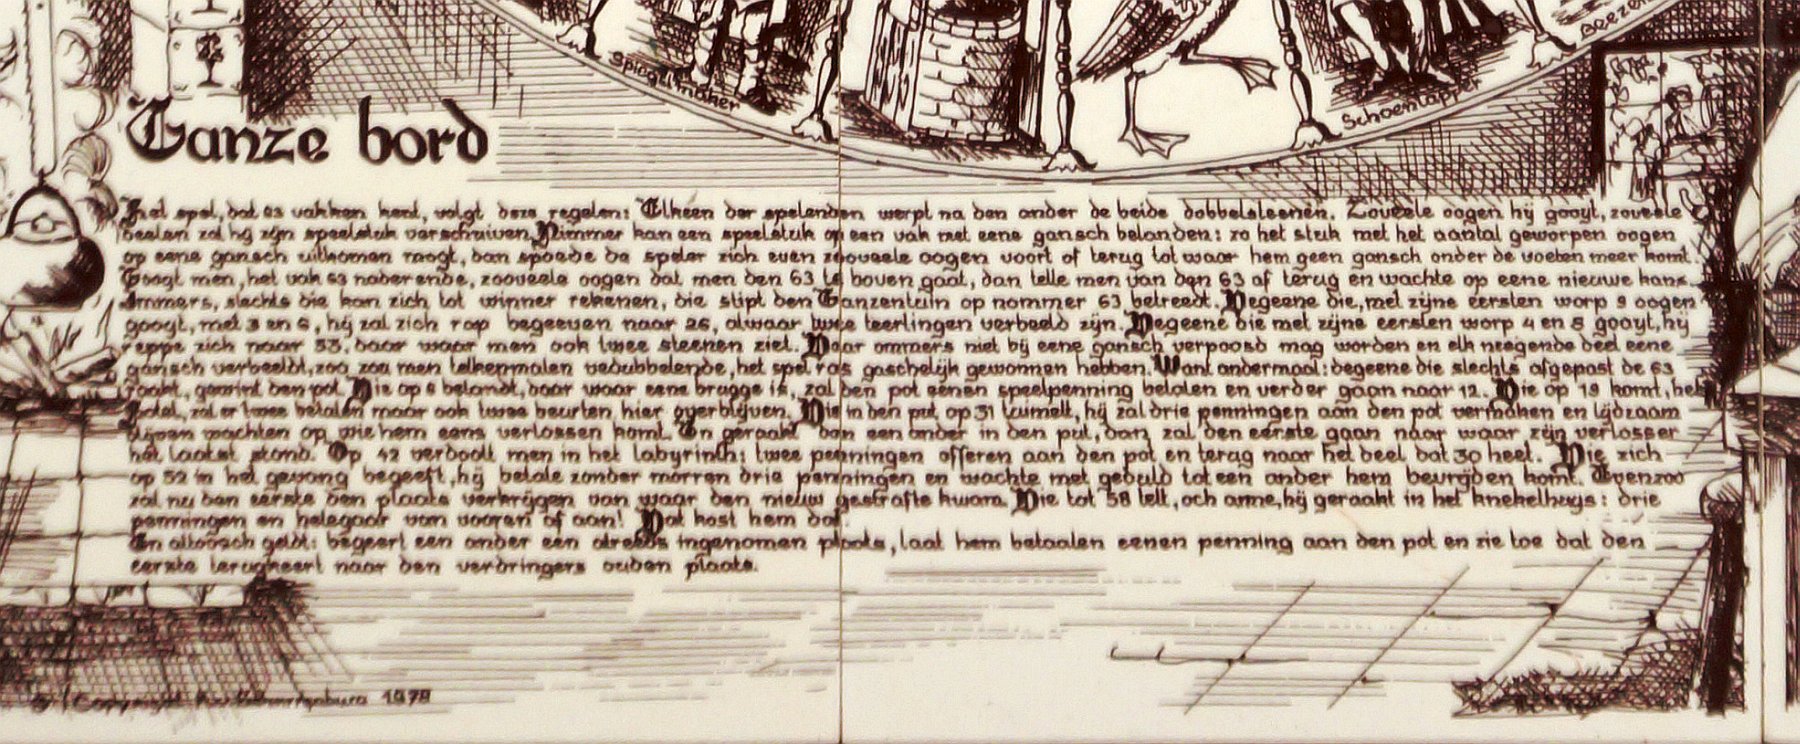 Spiegelmaker
Schoenlapper
Ganze bord
Het spel, dat 63 vakken kent, volgt deze regelen: Elkeen der spelenden werpt na den ander de beide dobbelsteenen. Zoveele oogen hij gooyt, zoveele
deelen zal hij zijn speelstuk verschuiven. Nimmer kan een speelstuk op een vak met eene gansch belanden: zo het stuk met het aantal geworpen oogen
op eene gansch uitkomen mogt, dan spoede de speler zich even zooveele oogen voort of terug tot waar hem geen gansch onder de voeten meer komt.
Gooyt men, het vak 63 naderende, zooveele oogen dat men den 63 te boven gaat, dan telle men van den 63 af terug en wachte op eene nieuwe kans.
Immers, slechts die kan zich tot winner rekenen, die stipt den Ganzentuin op nommer 63 betreedt. Degeene die, met zijne eersten worp 9 oogen
gooyt, met 3 en 6, hij zal zich rap begeeven naar 26, alwaar twee teerlingen verbeeld zijn. Degeene die met zijne eersten worp 4 en 5 gooyt, hij
reppe zich naar 53, daar waar men ook twee steenen ziet. Daar ommers niet bij eene gansch verpoosd mag worden en elk neegende deel eene
gansch verbeeldt, zoa zoa men telkenmalen vedubbelende, het spel ras gaschelijk gewonnen hebben. Want andermaal: degeene die slechts afgepast de 63
raakt, gewint den pot. Die op 6 belandt, daar waar eene brugge is, zal den pot eenen speelpenning betalen en verder gaan naar 12. Die op 19 komt, het
hotel, zal er twee betalen maar ook twee beurten hier overblijven. Die in den put op 31 tuimelt, hij zal drie penningen aan den pot vermaken en lijdzaam
blijven wachten op wie hem eens verlossen komt. En geraakt dan een ander in den put, dan zal den eerste gaan naar waar zijn verlosser
het laatst stond. Op 42 verdoolt men in het labyrinth: twee penningen offeren aan den pot en terug naar het deel dat 30 heet. Die zich
op 52 in het gevang begeeft, hij betale zonder morren drie penningen en wachte met geduld tot een ander hem bevrijden komt. Evenzoo
zal nu den eerste den plaats verkrijgen van waar den nieuw gestrafte kwam. Die tot 58 telt, och arme, hij geraakt in het knekelhuys: drie
penningen en helegaar van vooren af aan! Dat kost hem dat.
En altoosch geldt: begeert een ander een alreeds ingenomen plaats, laat hem betaalen eenen penning aan den pot en zie toe dat den
eerste terugkeert naar den verdringers ouden plaats.
© Copyright 1978